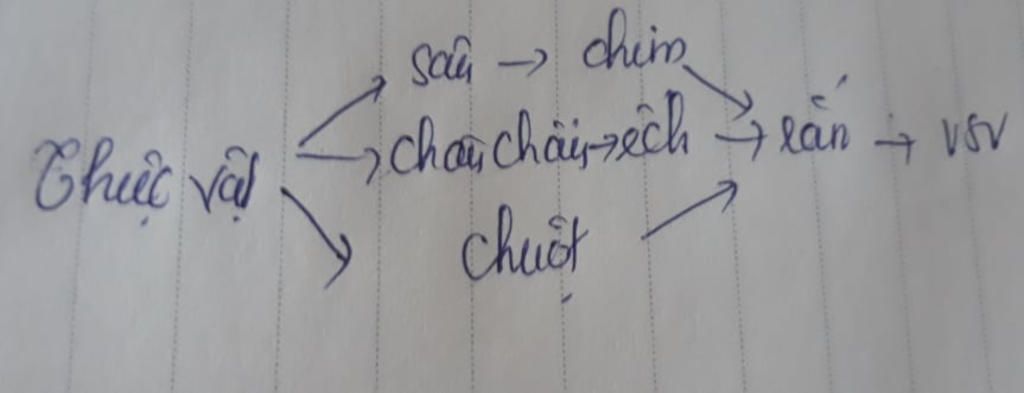 sâu → chim
Thực vật → châu chấu → ếch → rắn → VSV
chuột